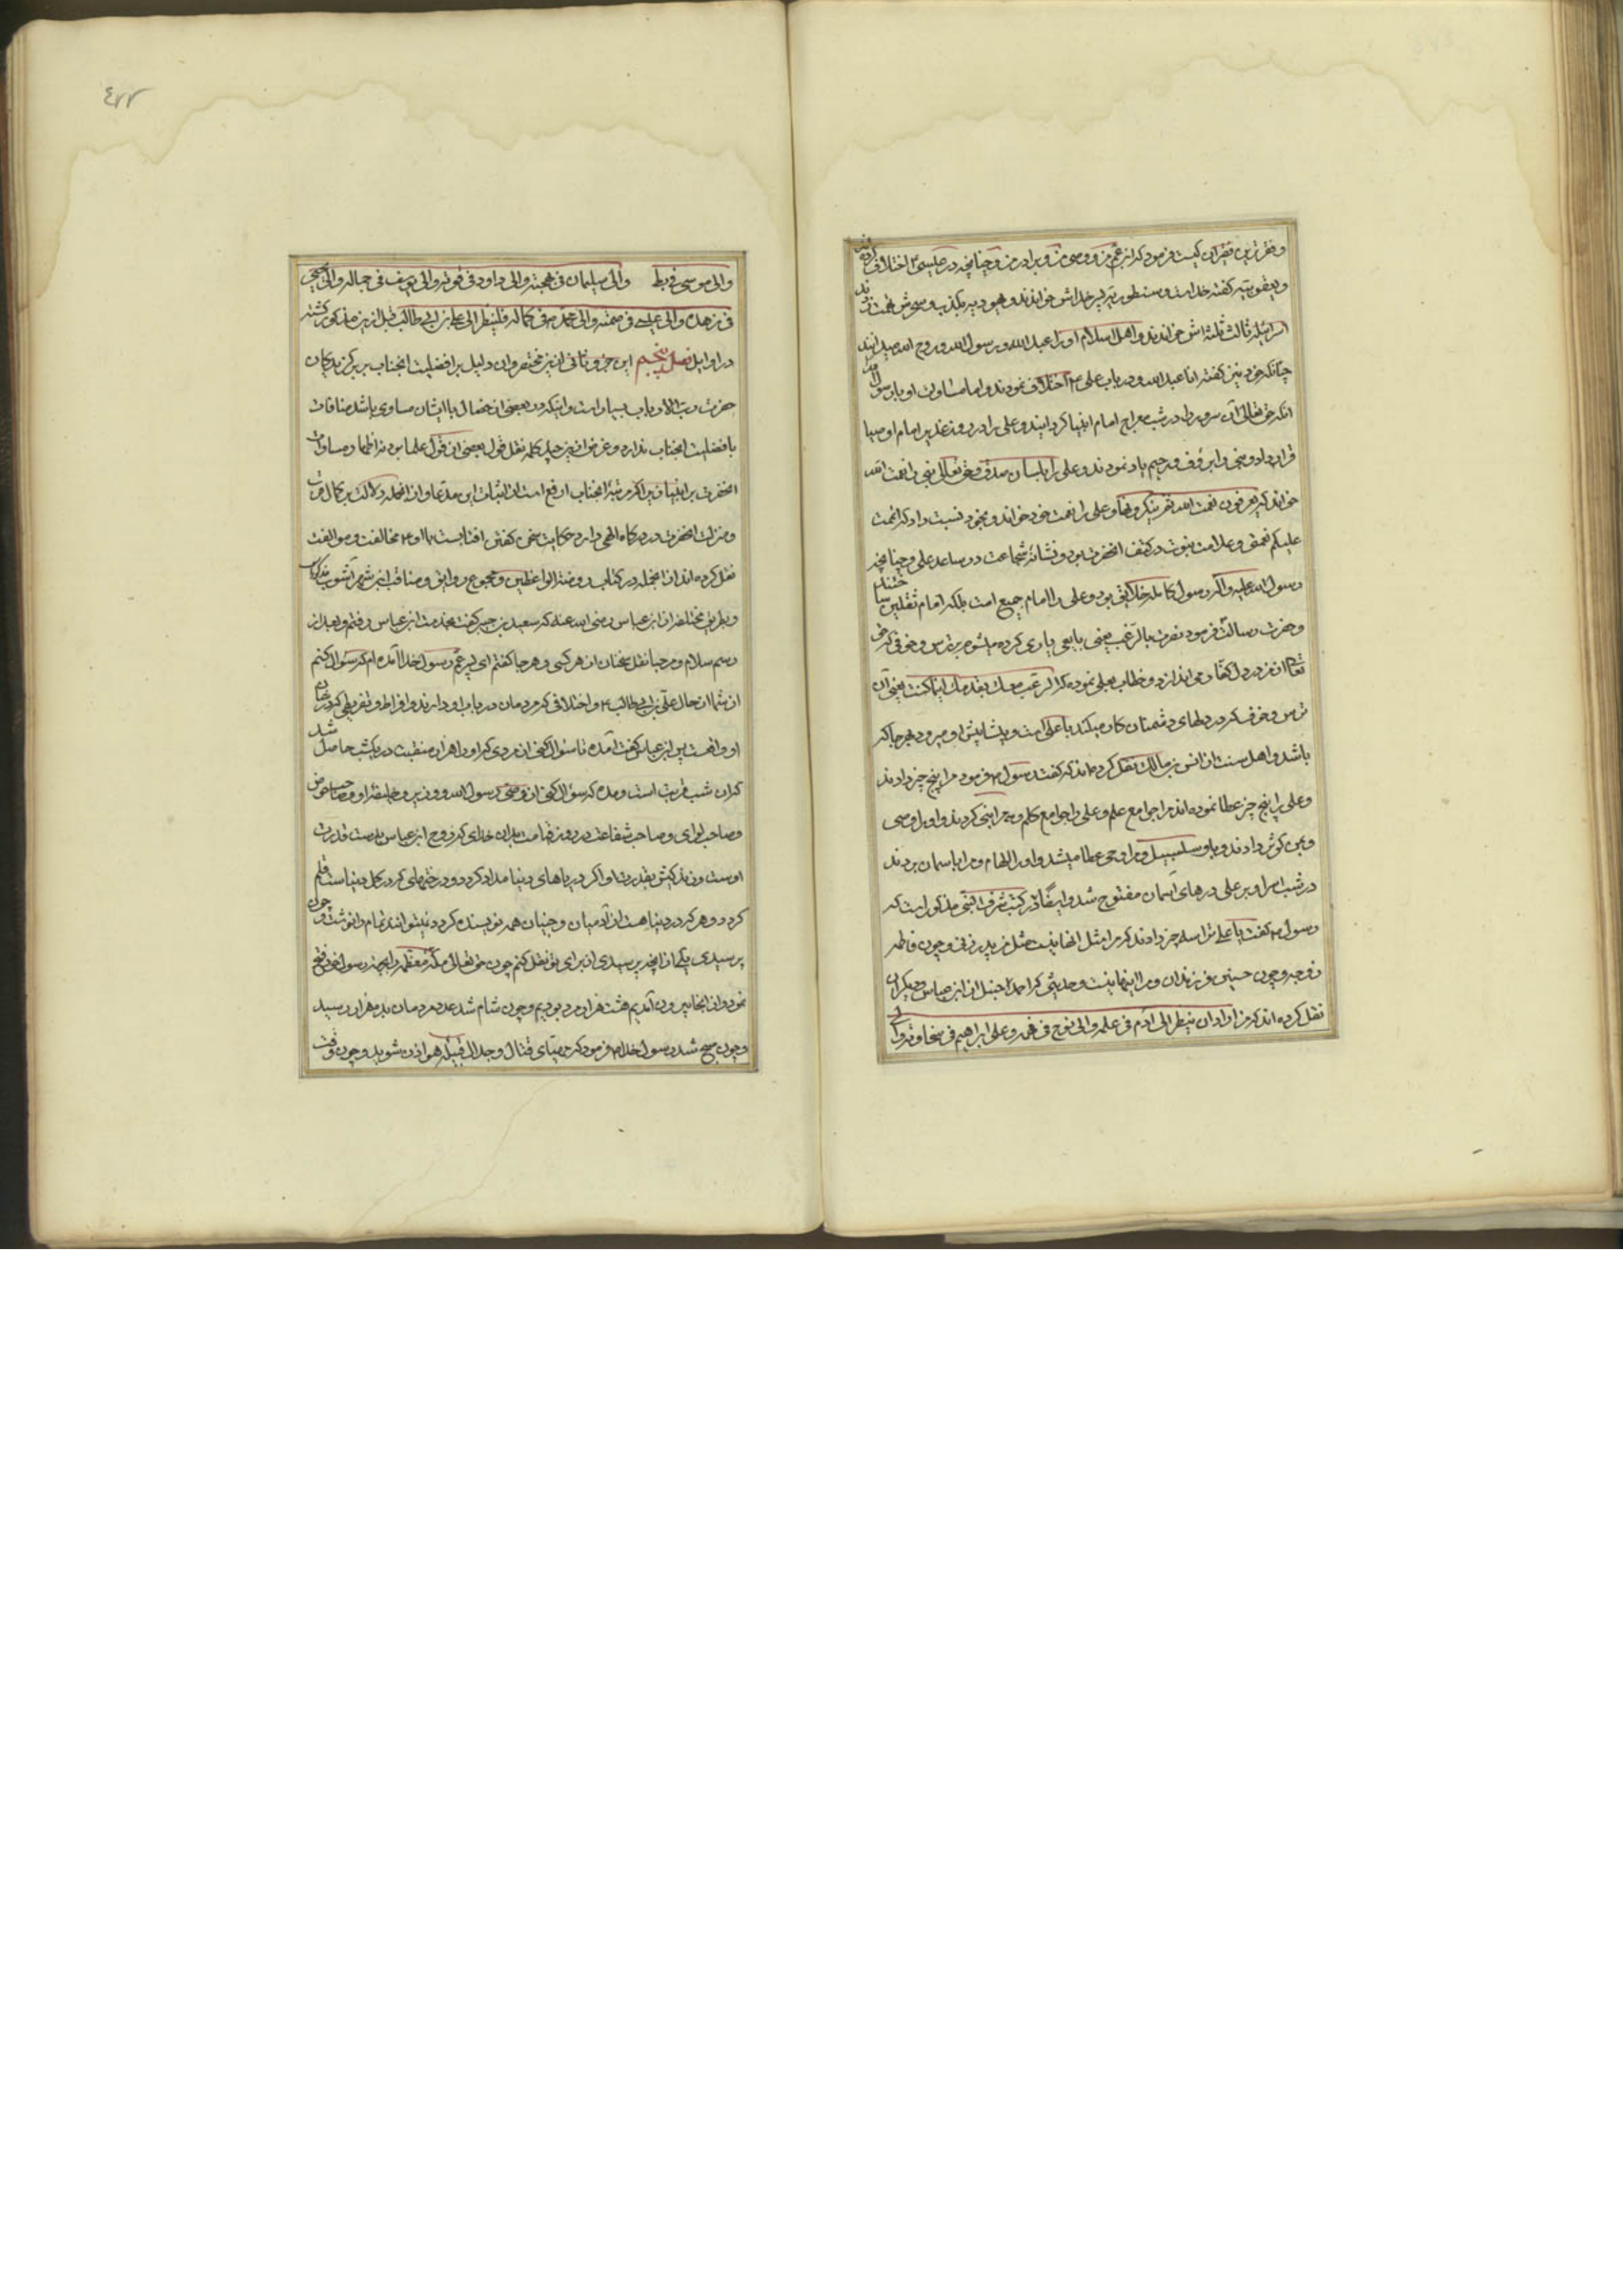 و فقر ترین فقیران کیست فرمود که ابن عم من و وصی من و برادر من و چنانچه در عیسی ۴ اختلاف کرده‌اند
و یعقوبیه کفته خداست و سنطوریه پسر خداش خواندند و یهودیه بکذب و سحرش تهمت زدند
اسرائیلیه ثالث ثلثه‌اش خواندند و اهل اسلام او را عبد الله و رسول الله و روح الله میدانند
چنانکه خود نیز کفته انا عبد الله و در باب علی ۴ اختلاف نمودند و امامت او با رسول
آنکه حق تعالی آن سرور را در شب معراج امام انبیا کردانید و علی را در روز غدیر امام اوصیا
قرار داد و نبی را برؤف و رحیم یاد نمودند و علی را بلسان صدق و حق تعالی نبی را نعمت الله
خواند که یعرفون نعمت الله ثم ینکرونها و علی را نعمت خود خواند و بخود نسبت داد که اتممت
علیکم نعمتی و علامت نبوت در کتف آنحضرت بود و نشانه شجاعت در ساعد علی و چنانچه
رسول الله علیه و آله رسول کافه خلایق بود و علی را امام جمیع امت بلکه امام ثقلین ساختند
و حضرت رسالت فرمود نصرت بالرعب یعنی یاری کرده میشوم بترس و خوفی که حق
تعالی از من در دل کفار می‌اندازد و خطاب بعلی نموده که الرعب معک یقدمک اینما کنت یعنی آن
ترس و خوف که در دلهای دشمنان کار میکند یا علی با تست و پیشاپیش او میرود هر جا که
باشد و اهل سنت از انس بن مالک نقل کرده‌اند که کفت رسول ۴ فرمود مرا پنج چیز دادند
و علی را پنج چیز عطا نموده‌اند مرا جوامع علم و علی را جوامع کلم و مرا نبی کردند و او را وصی
و بمن کوثر دادند و باو سلسبیل و مرا وحی عطا میشد و او را الهام و مرا باسمان بردند
در شب اسرا و بر علی درهای آسمان مفتوح شد و ایضا در کتب شرف النبی مذکور است که
رسول ۴ کفت یا علی ترا سه چیز دادند که مرا مثل آنها نیست مثل من پدر زنی و چون فاطمه
زوجه و چون حسنین فرزندان و مرا اینها نیست و حدیثی که احمد حنبل از ابن عباس و دیکران
نقل کرده‌اند که من اراد ان ینظر الی آدم فی علمه و الی نوح فی فهمه و علی ابراهیم فی سخاوته و الی
و الی موسی فی و الی سلیمان فی بهجته و الی داود فی قوته و الی یوسف فی جماله و الی یحیی
فی زهده و الی عیسی فی صمته و الی محمد ص فی کماله فلینظر الی علی بن ابی طالب قبل ازین مذکور کشته
در اوایل فصل پنجم این جزو ثانی ازین مختصر و این دلیل بر افضلیت آنجناب بر برکزیدکان
حضرت رب الارباب بسیار است و اینکه در بعضی از خصال با ایشان مساوی باشد منافات
با افضلیت آنجناب ندارد و غرض ازین چند کلمه نقل قول بعضی از علما بود نه اظهار مساوات
آنحضرت بر انبیا زیرا که مرتبه آنجناب ارفع است از اثبات این مدعا و از آنجمله دلالت بر کمال قرب
و منزلت آنحضرت در درکاه الهی دارد حکایت سخن کفتن افتابست با او ۴ مخالف و موالف
نقل کرده‌اند از آنجمله در کتاب روضة الواعظین و مجموع رایق و مناقب ابن شهر آشوب مذکور است
و بطریق مختلفه از ابن عباس رضی الله عنه که سعید بن جبیر کفت بخدمت ابن عباس رفتم و بعد از
رسم سلام و مرحبا نقل سخنان از هر کس و هر جا کفتم ای پسر عم رسول خدا آمده‌ام که سؤال کنم
از شما از حال علی بن ابی طالب ۴ و اختلافی که مردمان در باب او دارند و افراط و تفریطی که در شان
او واقعست پس ابن عباس کفت آمده تا سؤال کنی از مردی که او را هزار منقبت در یکشب حاصل شد
که آن شب قربت است و آمده که سؤال کنی از وصی رسول الله و وزیر و خلیفه او و صاحب حوض
و صاحب لوای و صاحب شفاعت در روز قیامت بدان خدای که روح ابن عباس بدست قدرت
اوست و زندکیش بقدرت او اکر دریاهای دنیا مداد کردد و درختهای که در کل دنیاست قلم
کردد و هر که در دنیا هست از آدمیان و جنیان همه نویسنده کردد نمیتوانند تمام را نوشت و چون
پرسیدی یکی از آنچه پرسیدی از برای تو نقل کنم چون حق تعالی مکه معظمه را بجهة رسول خود فتح
نمود و از آنجا بیرون آمدیم هشت هزار مرد بودیم و چون شام شد عدد مردمان بده هزار رسید
و چون صبح شد رسول خدا ص فرمود که مهیای قتال و جدال قبیله هوازن شوید و چون وقت
٤٢٢